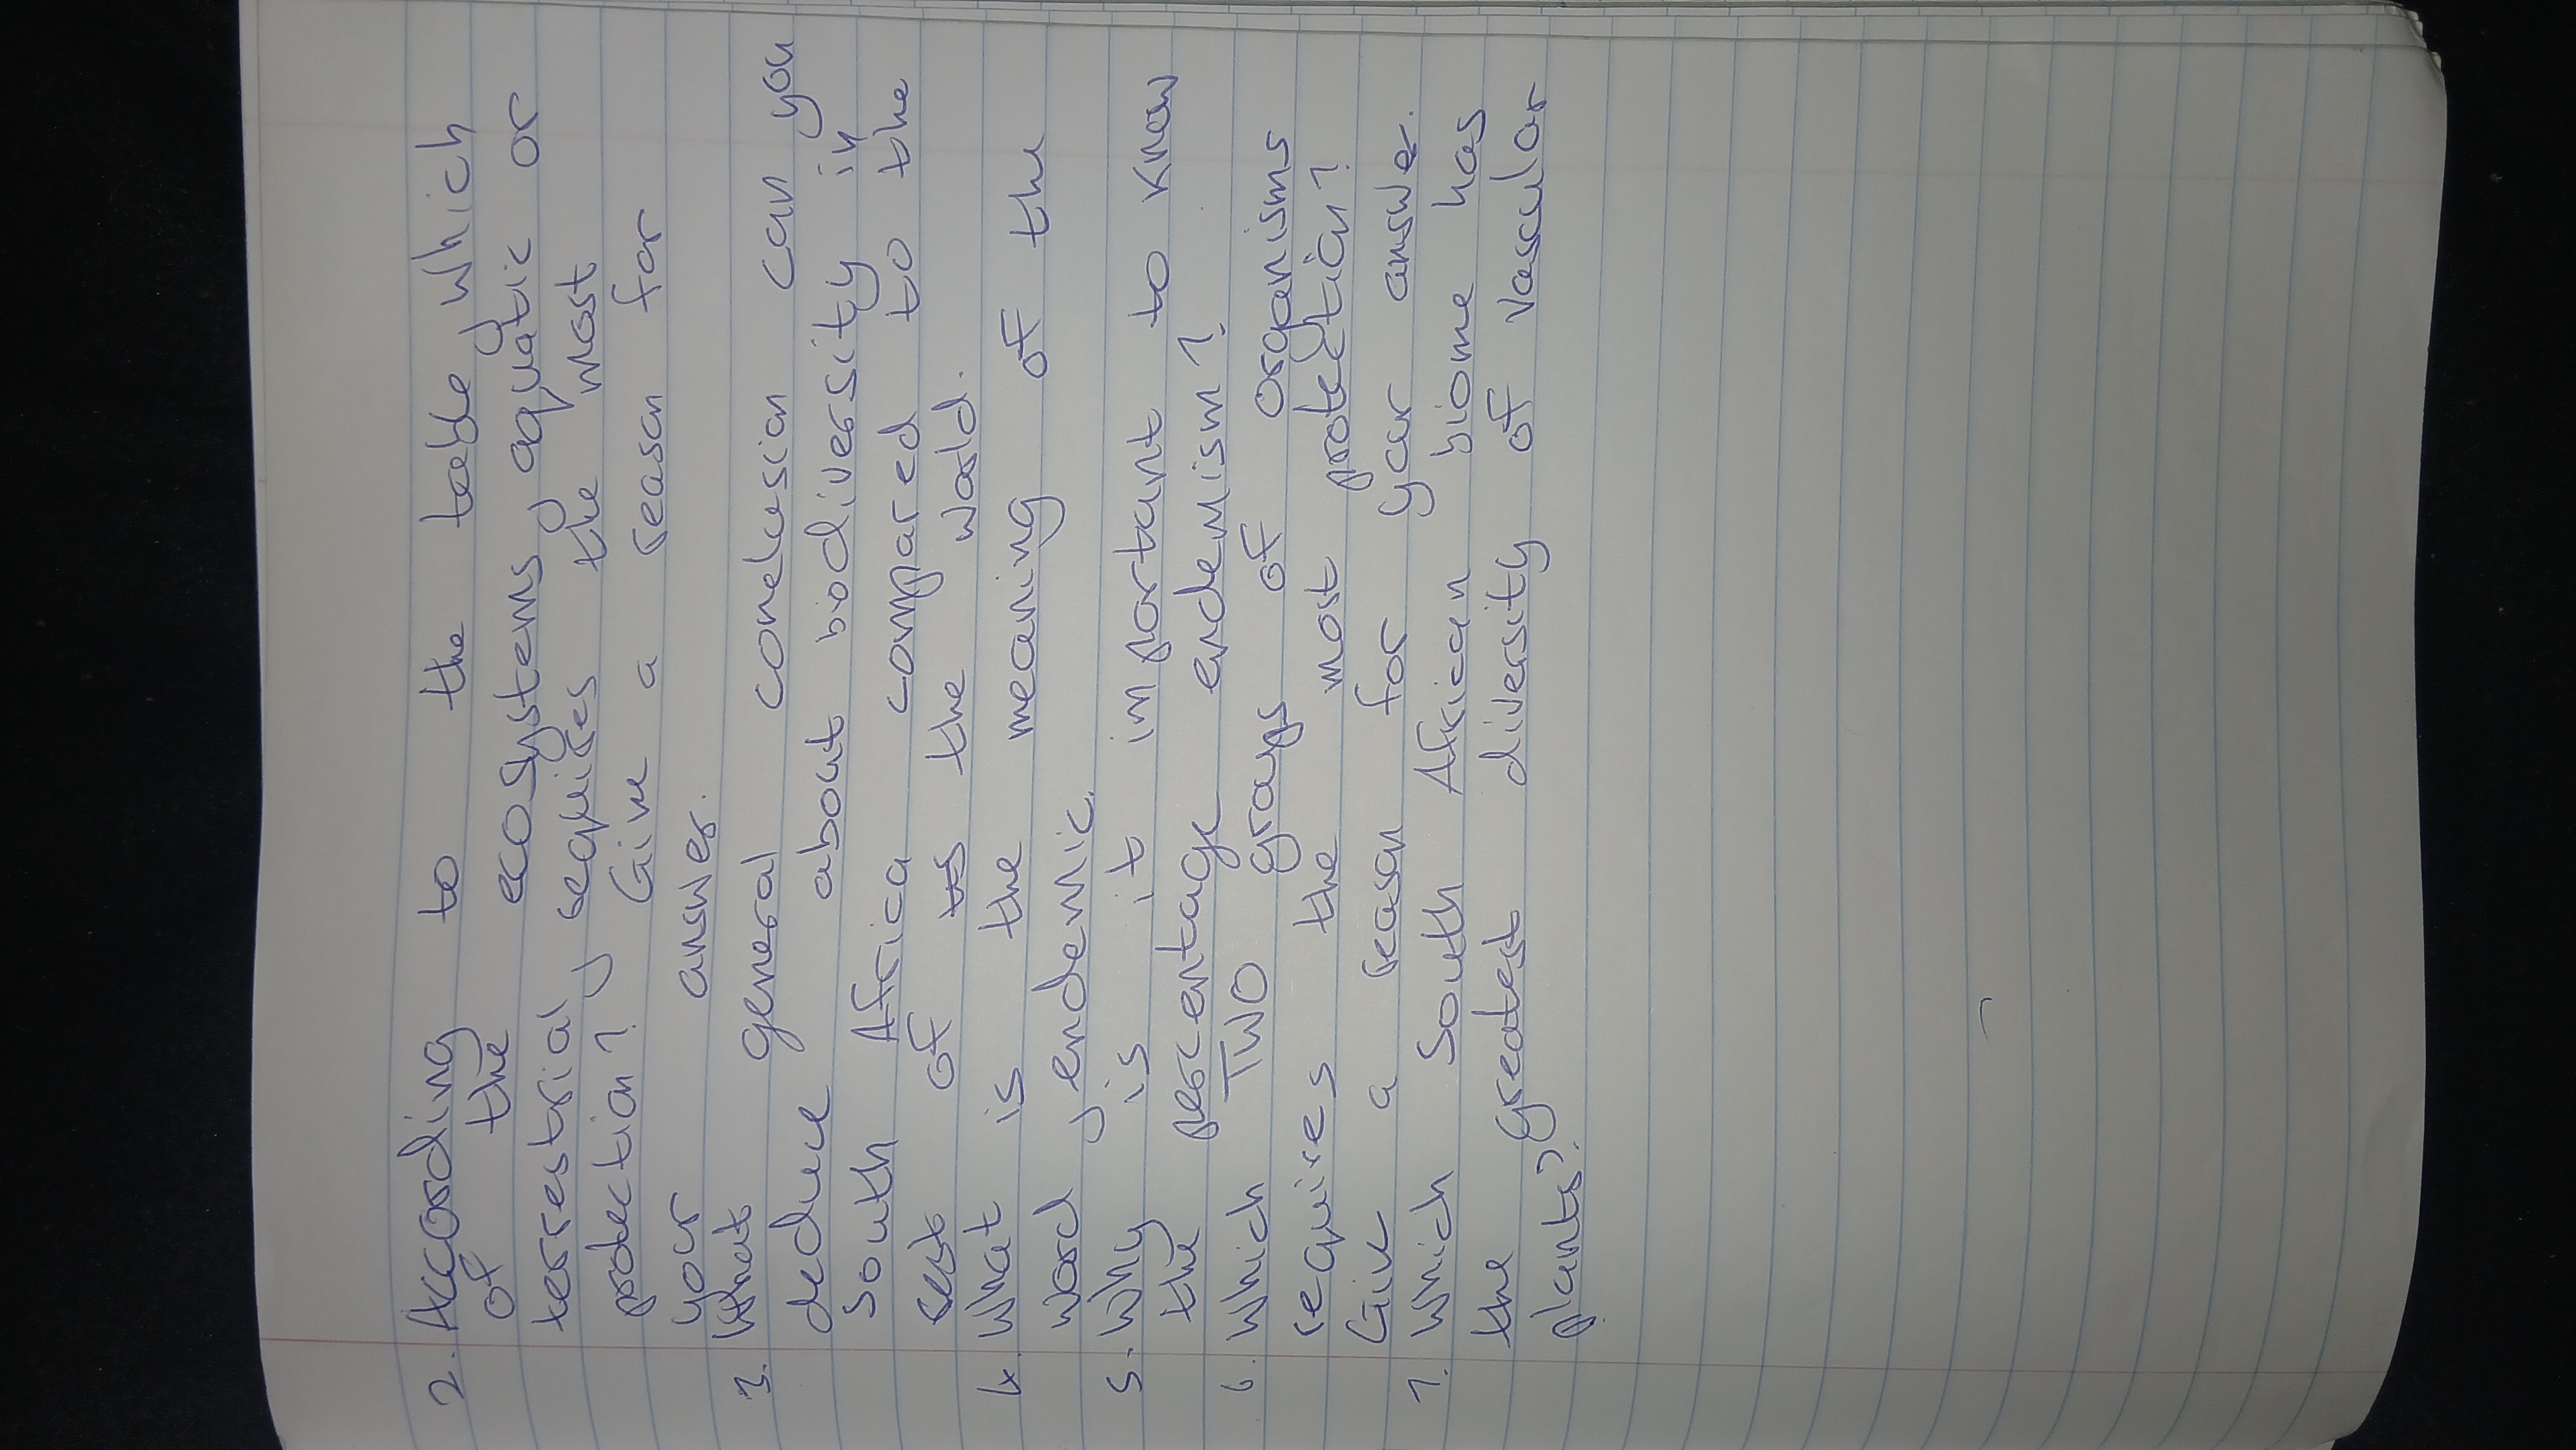 2. According to the table which
of the ecosystems, aquatic or
terrestrial, requires the most
protection? Give a reason for
your answer.
3. What general conclusion can you
deduce about biodiversity in
South Africa compared to the
rest of the world.
4. What is the meaning of the
word, endemic.
5. Why is it important to know
the percentage endemism?
6. Which TWO groups of organisms
requires the most protection?
Give a reason for your answer.
7. Which South African biome has
the greatest diversity of vascular
plants?